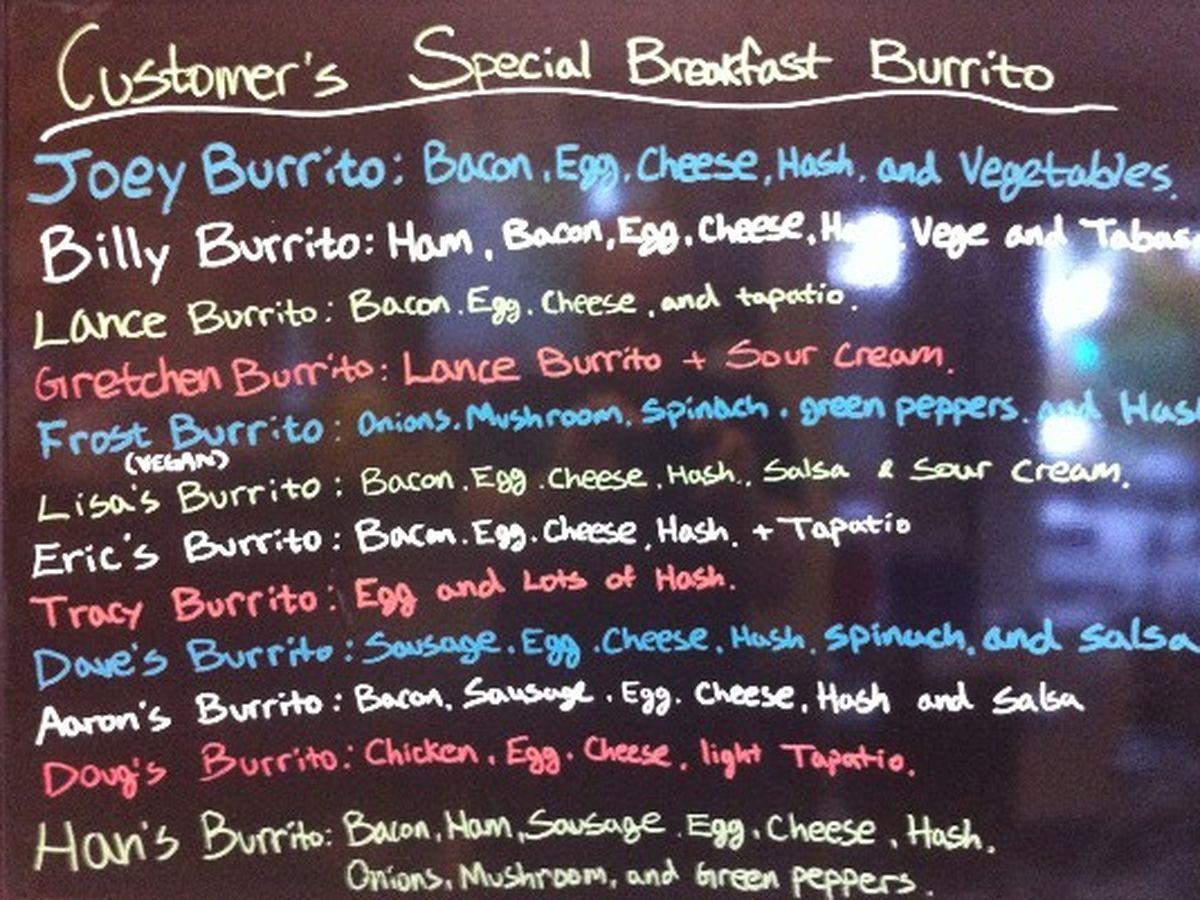 Customer's Special Breakfast Burrito
Joey Burrito: Bacon, Egg, Cheese, Hash, and Vegetables.
Billy Burrito: Ham, Bacon, Egg, Cheese, Vege and
Lance Burrito: Bacon. Egg. Cheese, and tapatio.
Gretchen Burrito: Lance Burrito + Sour Cream.
Frost Burrito: Onions. Mushroom, Spinach, green peppers. and
(VEGAN)
Lisa's Burrito: Bacon. Egg. Cheese, Hash, Salsa & Sour Cream.
Eric's Burrito: Bacon. Egg. Cheese, Hash. + Tapatio
Tracy Burrito: Egg and Lots of Hash.
Dave's Burrito: Sausage. Egg. Cheese, Hash, Spinach, and Salsa
Aaron's Burrito: Bacon, Sausage. Egg. Cheese, Hash and Salsa
Doug's Burrito: Chicken, Egg. Cheese, light Tapatio.
Han's Burrito: Bacon, Ham, Sausage. Egg, Cheese, Hash.
Onions, Mushroom, and Green peppers.